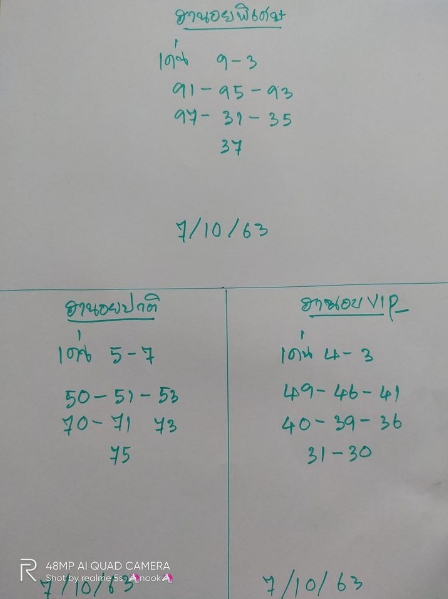 ฮานอยพิเศษ
เด่น 9-3
91 - 95 - 93
97 - 31 - 35
37
7/10/63
ฮานอยปาติ
เด่น 5-7
50 - 51 - 53
70 - 71 73
75
7/10/63
ฮานอยVIP
เด่น 4-3
49 - 46 - 41
40 - 39 - 36
31 - 30
7/10/63
48MP AI QUAD CAMERA
Shot by realme 5s